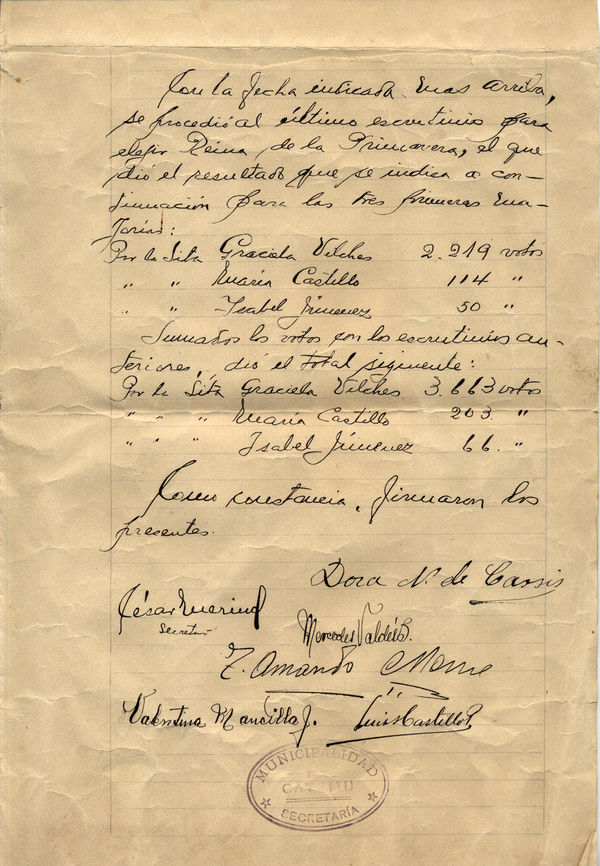 Con la fecha indicada mas arriba,
se procedió al último escrutinio para
elegir Reina de la Primavera, el que
dió el resultado que se indica a con-
tinuación para las tres primeras ma-
yorias:
Por la Srta Graciela Vilches 2.219 votos
" " María Castillo 114 "
" " Isabel Jimenez 50 "
Sumados los votos con los escrutinios an-
teriores, dió el total siguiente:
Por la Srta Graciela Vilches 3.663 votos
" " " María Castillo 203 "
" " " Isabel Jiménez 66. "
Como constancia, firmaron los
presentes.
Dora N. de
César Merino
Secretario
Mercedes Valdés B.
Amando
Valentina Mancilla J. Luis Castillo P.
MUNICIPALIDAD
SECRETARÍA